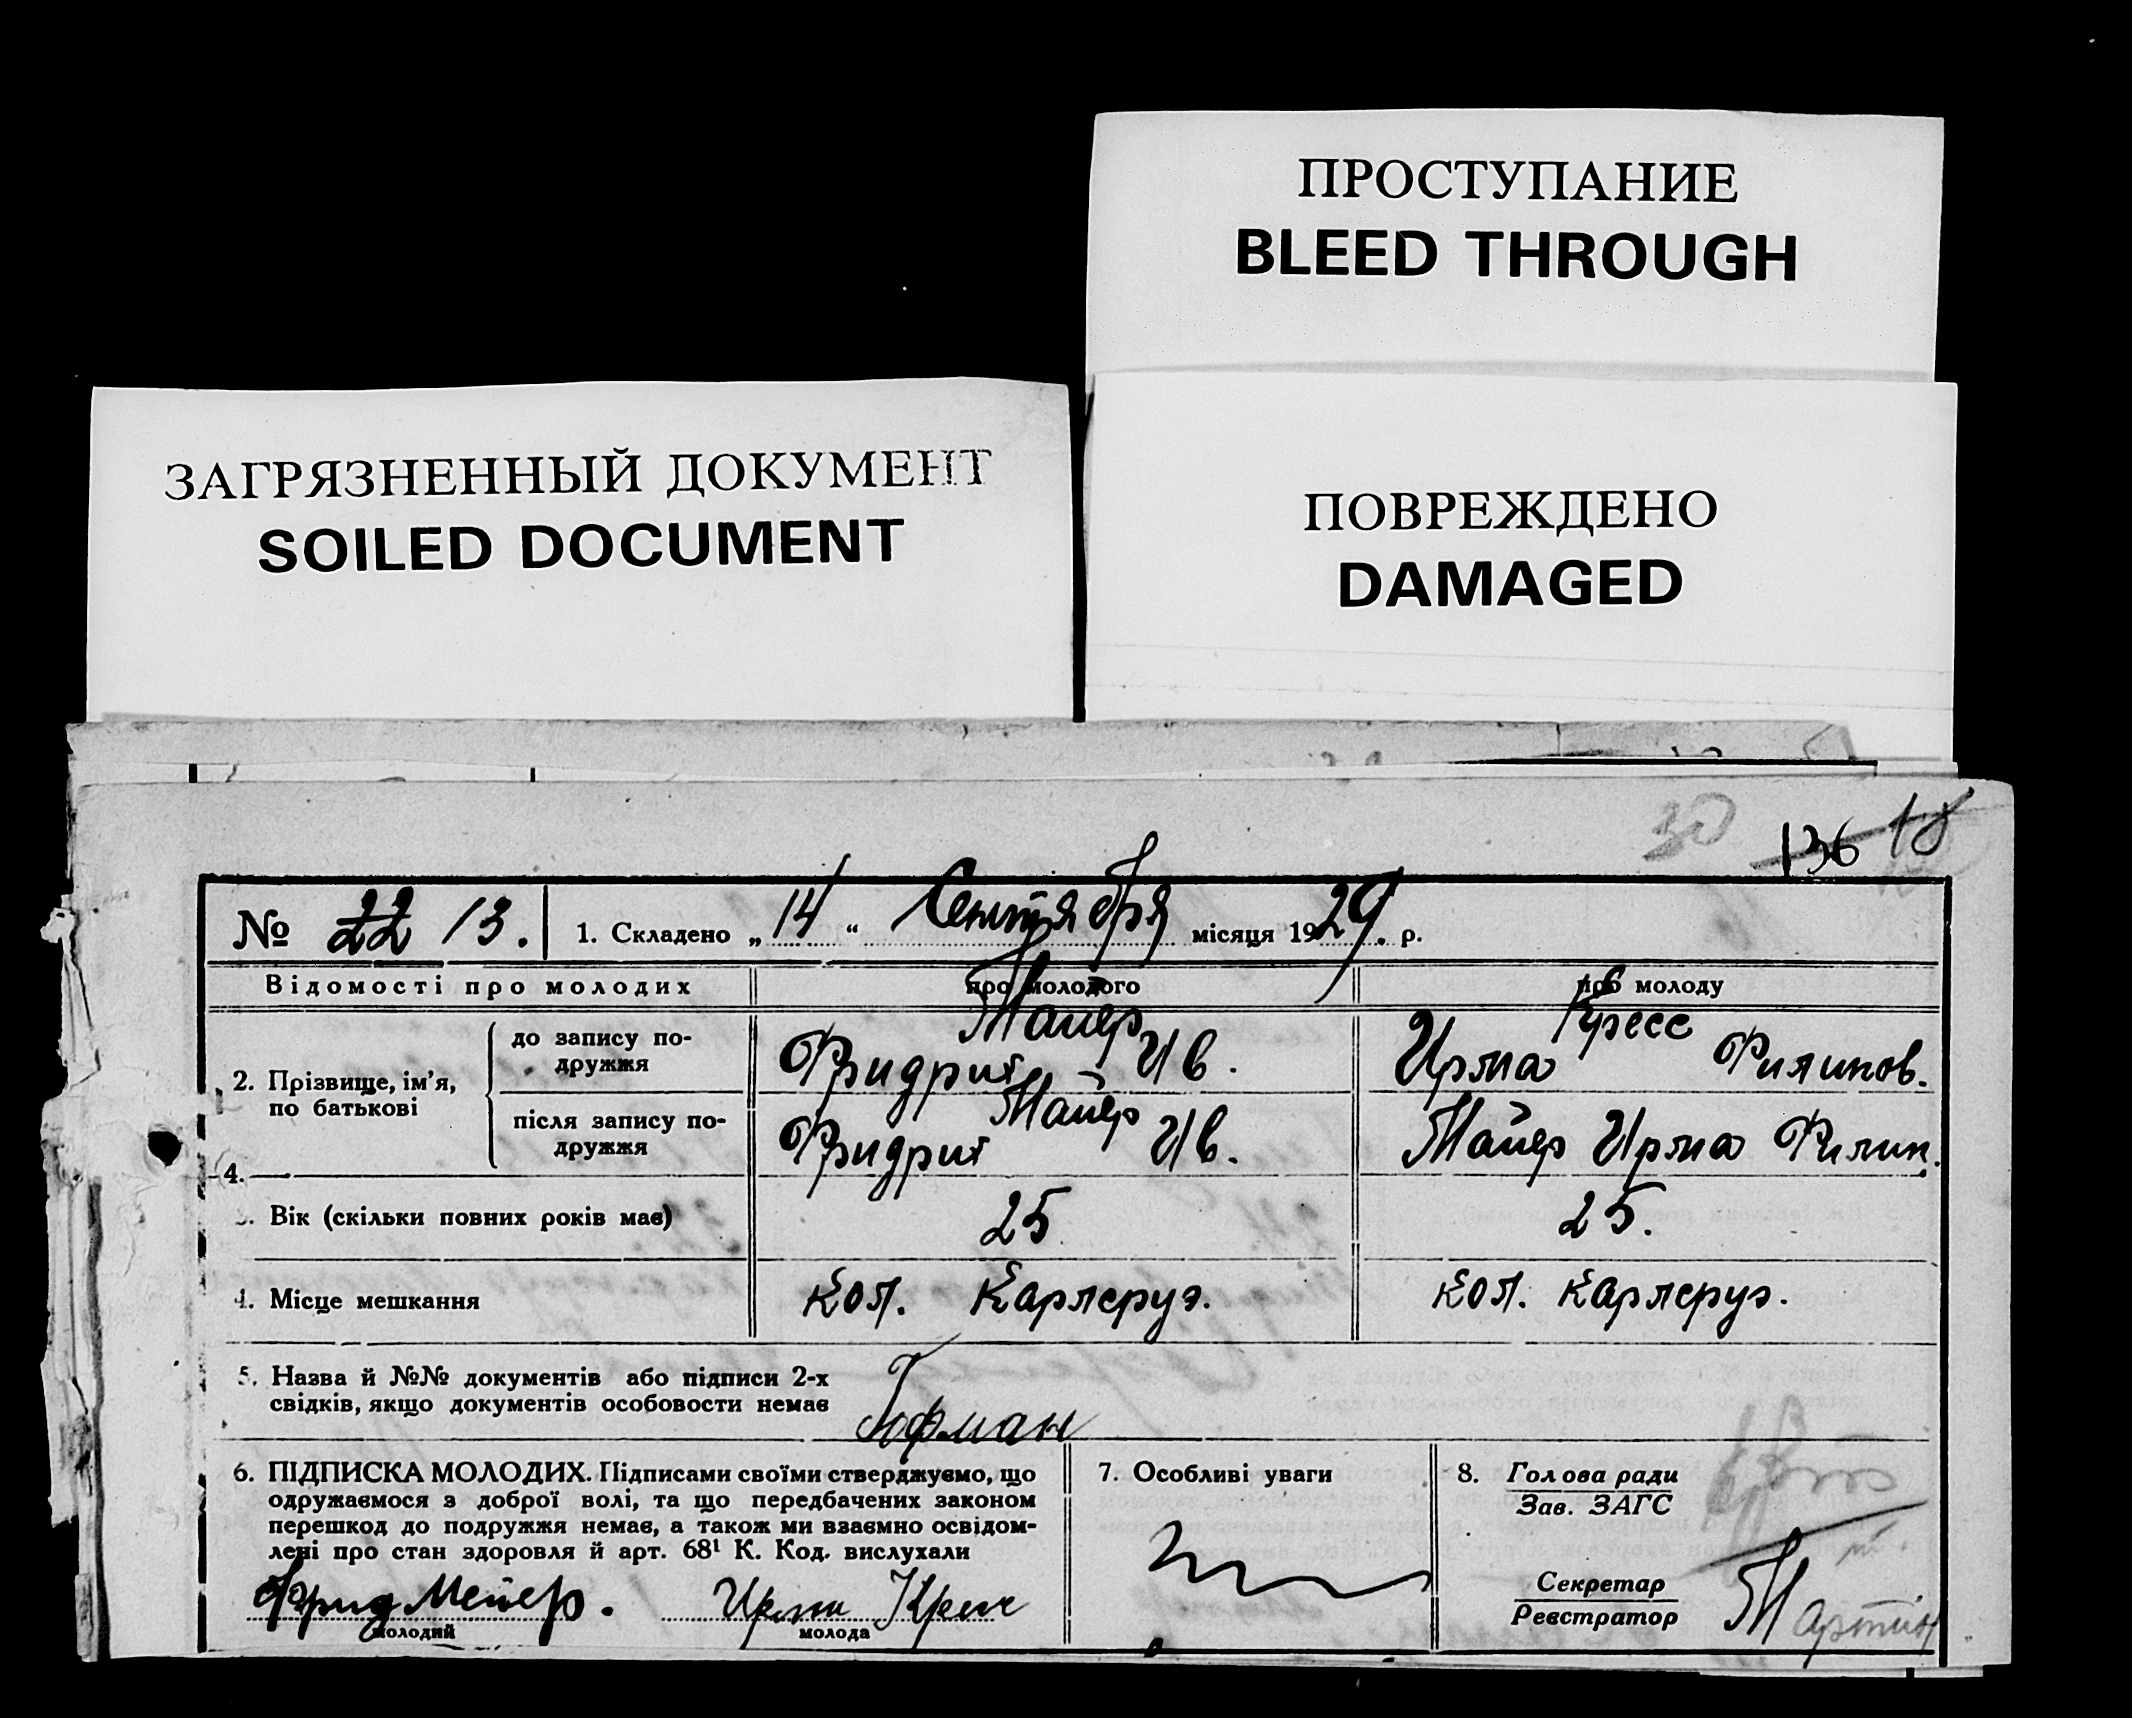 ПРОСТУПАНИЕ
BLEED THROUGH
ЗАГРЯЗНЕННЫЙ ДОКУМЕНТ
SOILED DOCUMENT
ПОВРЕЖДЕНО
DAMAGED
30 136 18
№ 22 13. 1. Складено „14“ Сентября місяця 1929. р.
Відомості про молодих про молодого про молоду
2. Прізвище, ім’я, по батькові
до запису подружжя Майер Фридрих Ив. Кресс Ирма Филипов.
після запису подружжя Майер Фридрих Ив. Майер Ирма Филип.
4.
3. Вік (скільки повних років має) 25 25.
4. Місце мешкання Кол. Карлсруэ. Кол. Карлсруэ.
5. Назва й №№ документів або підписи 2-х
свідків, якщо документів особовости немає Гофман
6. ПІДПИСКА МОЛОДИХ. Підписами своїми стверджуємо, що
одружаємося з доброї волі, та що передбачених законом
перешкод до подружжя немає, а також ми взаємно освідом-
лені про стан здоровля й арт. 68¹ К. Код. вислухали
Фрид Мейер. Ирма Крес
молодий молода
7. Особливі уваги
8. Голова ради
Зав. ЗАГС
Секретар
Реєстратор Мартин